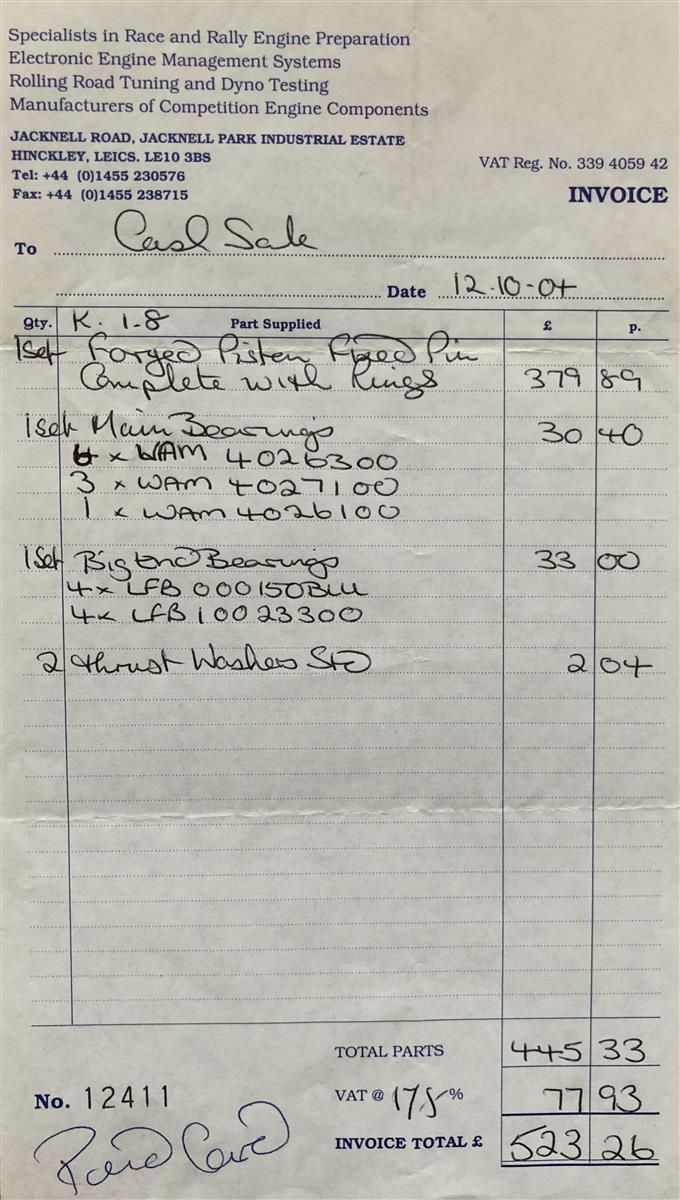 Specialists in Race and Rally Engine Preparation
Electronic Engine Management Systems
Rolling Road Tuning and Dyno Testing
Manufacturers of Competition Engine Components
JACKNELL ROAD, JACKNELL PARK INDUSTRIAL ESTATE
HINCKLEY, LEICS. LE10 3BS
Tel: +44 (0)1455 230576
Fax: +44 (0)1455 238715
VAT Reg. No. 339 4059 42
INVOICE
To Cash Sale
Date 12.10-04
Qty. K. 1-8 Part Supplied £ p.
1 Set Forged Piston Fixed Pin
Complete with Rings 379 89
1 Set Main Bearings 30 40
6 x WAM 4026300
3 x WAM 4027100
1 x WAM 4026100
1 Set Big End Bearings 33 00
4 x LFB 000150BLU
4 x LFB 10023300
2 Thrust Washers STD 2 04
TOTAL PARTS 445 33
No. 12411
VAT @ 17.5 % 77 93
INVOICE TOTAL £ 523 26
Paid Card